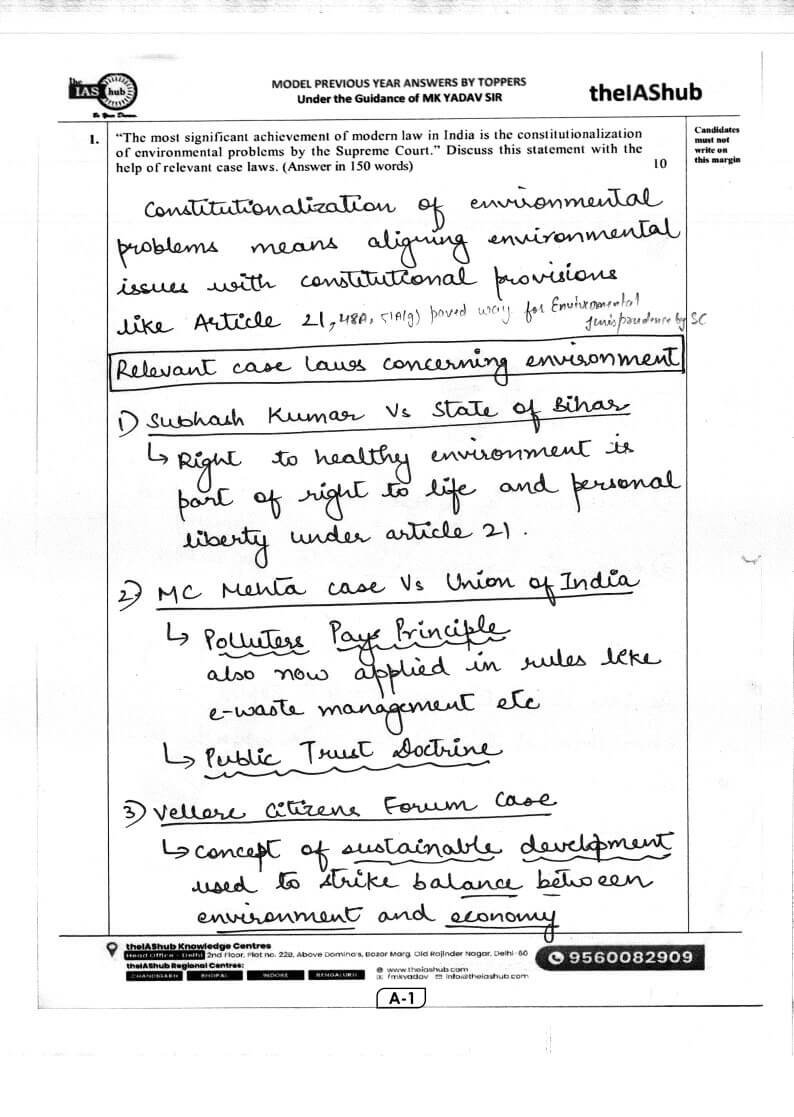 the
IAS hub
Be Your Dream
MODEL PREVIOUS YEAR ANSWERS BY TOPPERS
Under the Guidance of MK YADAV SIR
theIAShub
Candidates
must not
write on
this margin
1. “The most significant achievement of modern law in India is the constitutionalization
of environmental problems by the Supreme Court.” Discuss this statement with the
help of relevant case laws. (Answer in 150 words) 10
Constitutionalization of environmental
problems means aligning environmental
issues with constitutional provisions
like Article 21, 48A, 51A(g) paved way for Environmental
Jurisprudence by SC
Relevant case laws concerning environment
1) Subhash Kumar Vs State of Bihar
↳ Right to healthy environment is
part of right to life and personal
liberty under article 21.
2) MC Mehta case Vs Union of India
↳ Polluters Pays Principle
also now applied in rules like
e-waste management etc
↳ Public Trust Doctrine
3) Vellore Citizens Forum Case
↳ concept of sustainable development
used to strike balance between
environment and economy
theIAShub Knowledge Centres
Head Office - Delhi 2nd Floor, Plot no. 22B, Above Domino's, Bazar Marg, Old Rajinder Nagar, Delhi-60
theIAShub Regional Centres:
CHANDIGARH BHOPAL INDORE BENGALURU
www.theiashub.com
/mkyadav info@theiashub.com
9560082909
A-1